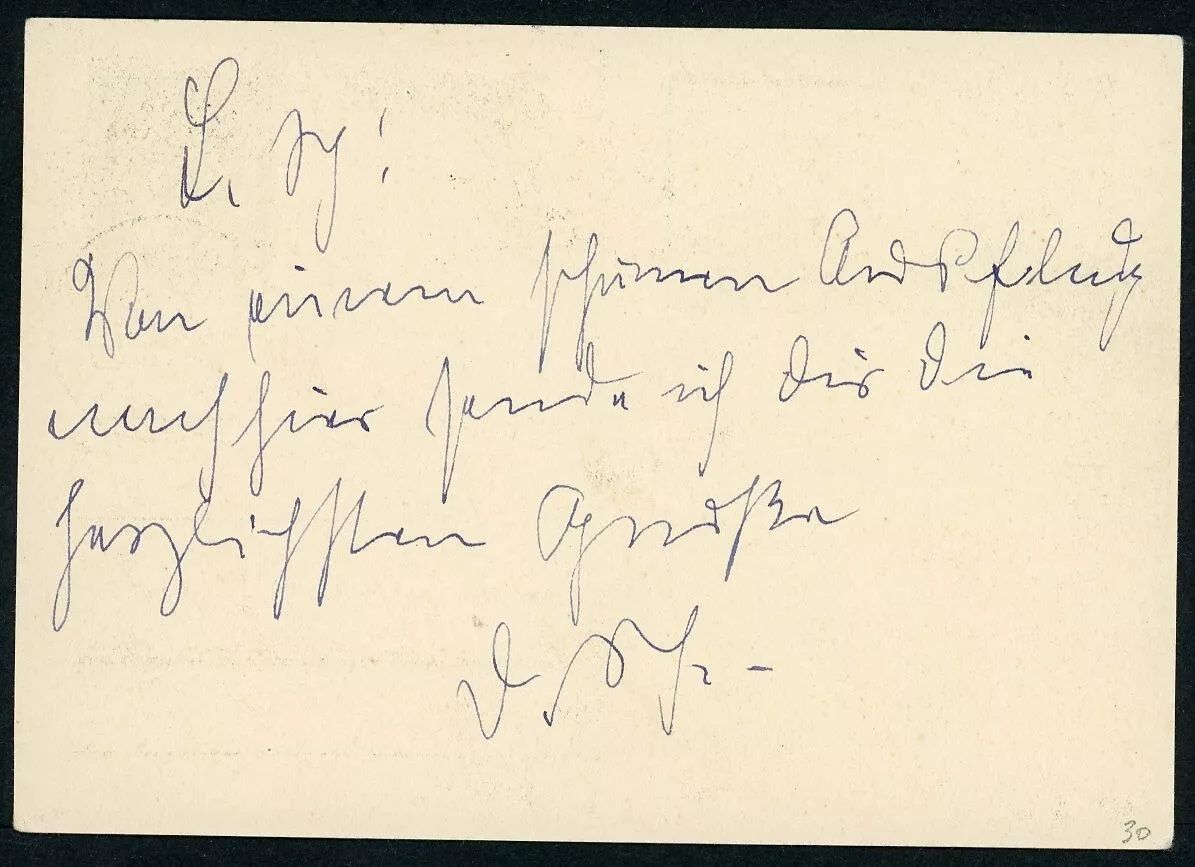 L.
Von einem schönen Ausflug
nach hier sende ich Dir die
herzlichsten Grüße
D. Sch. -
30